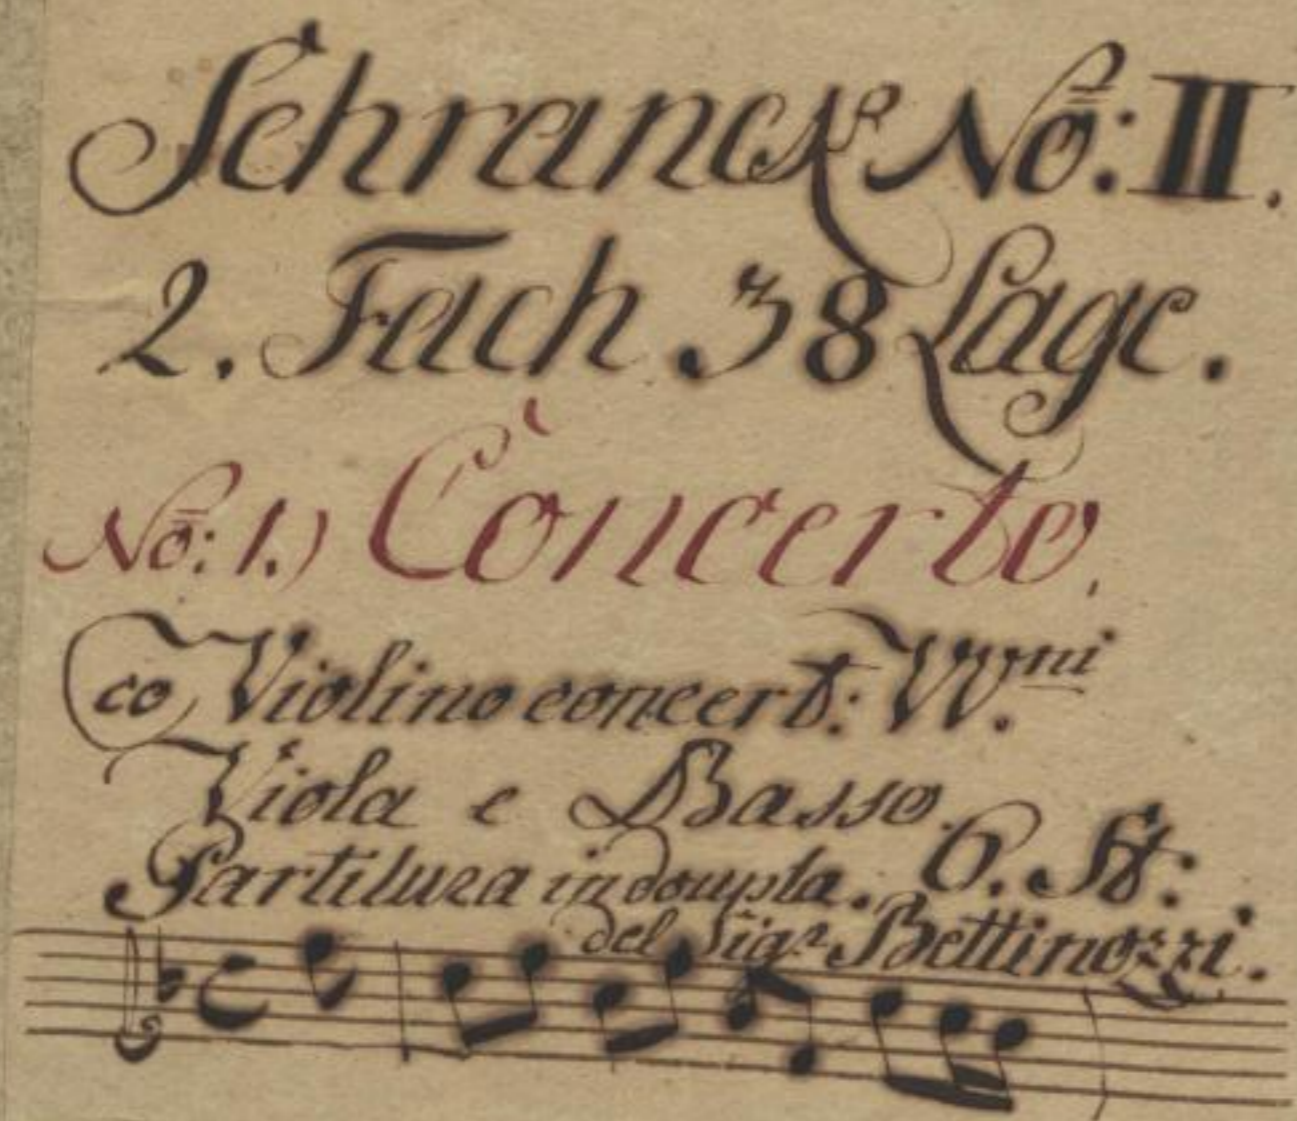 Schranck No: II.
2. Fach 38 Lage.
No: 1.) Concerto.
co Violino concert: VV.ni
Viola e Basso.
Partitura in doupla. 6. St:
del Sigr. Bettinozzi.